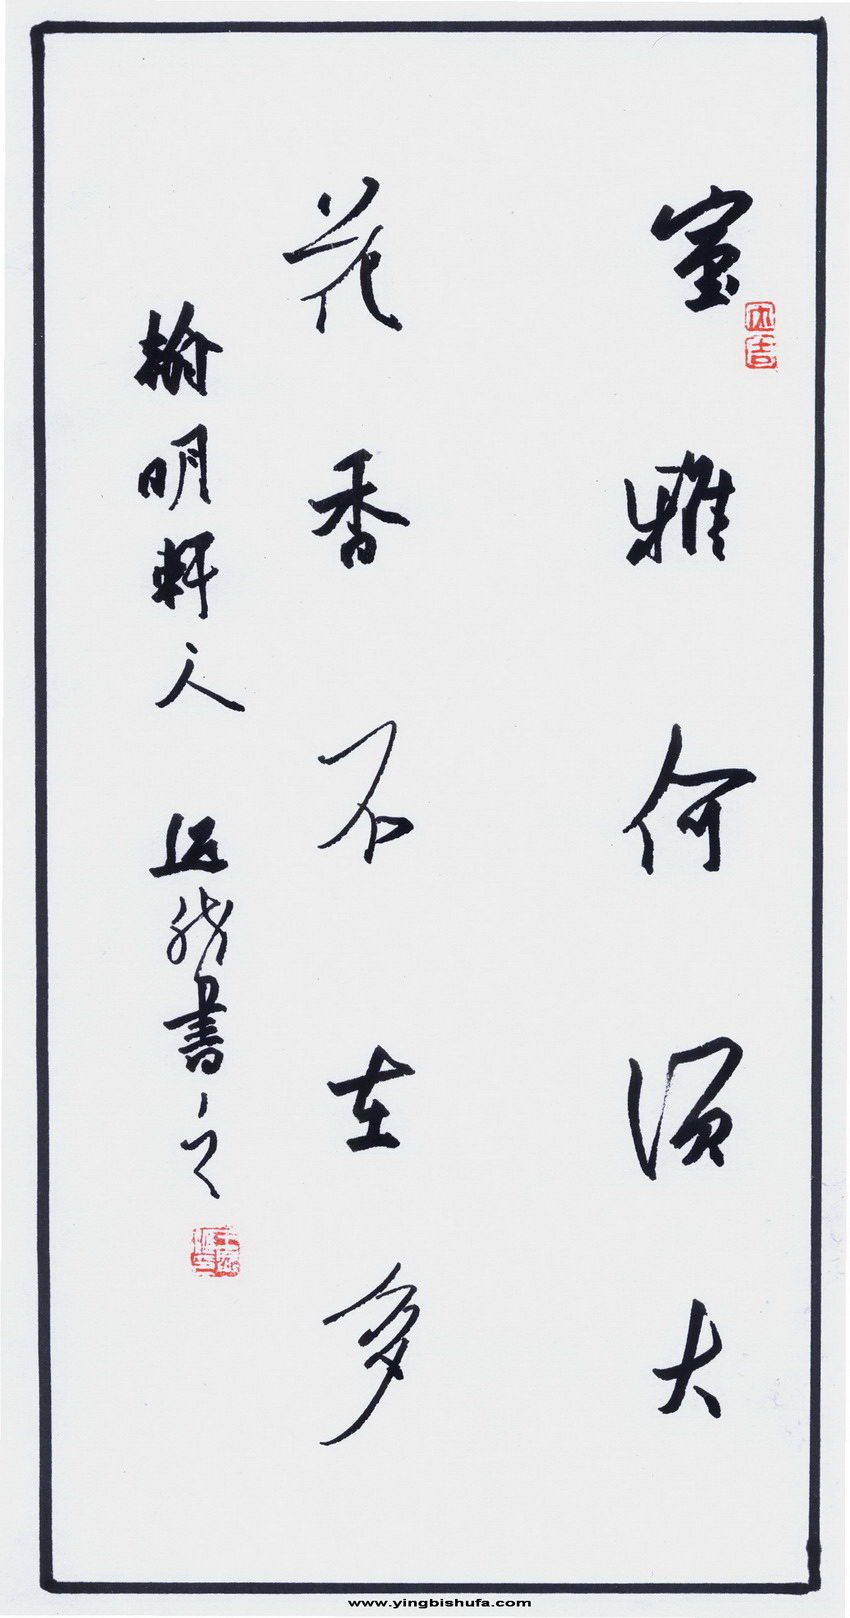 室雅何须大
花香不在多
榆明轩人 书之
www.yingbishufa.com